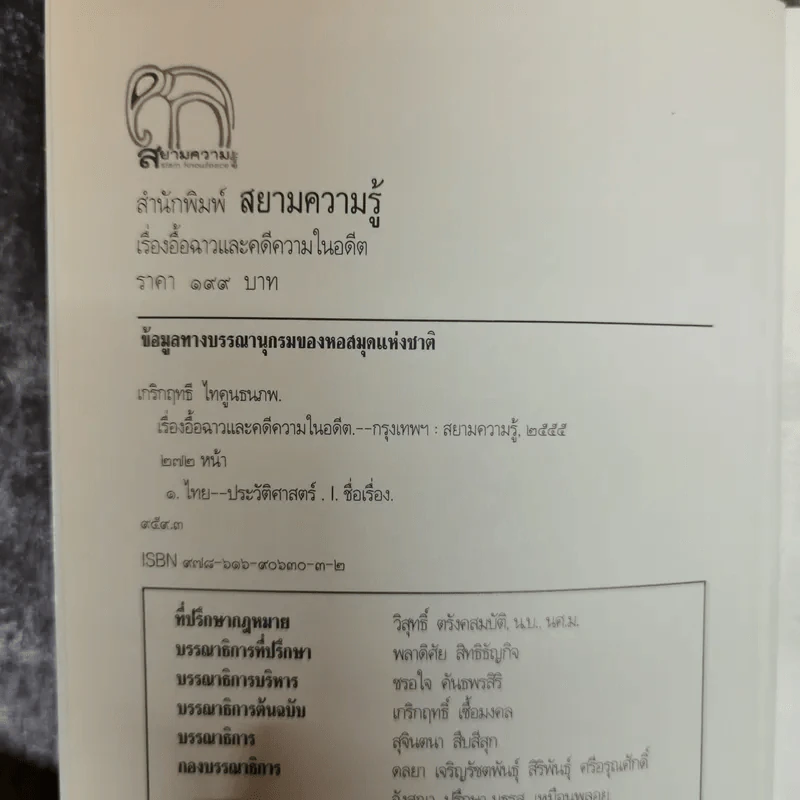 สยามความรู้
สำนักพิมพ์ สยามความรู้
เรื่องอื้อฉาวและคดีความในอดีต
ราคา ๑๙๙ บาท
ข้อมูลทางบรรณานุกรมของหอสมุดแห่งชาติ
เกริกฤทธิ ไทคูนธนภพ.
เรื่องอื้อฉาวและคดีความในอดีต.--กรุงเทพฯ : สยามความรู้, ๒๕๕๕
๒๗๒ หน้า
๑. ไทย--ประวัติศาสตร์ . I. ชื่อเรื่อง.
๙๕๙.๓
ISBN ๙๗๘-๖๑๖-๙๐๖๓๐-๓-๒
ที่ปรึกษากฎหมาย วิสุทธิ์ ตรังคสมบัติ, น.บ., นศ.ม.
บรรณาธิการที่ปรึกษา พลาดิศัย สิทธิธัญกิจ
บรรณาธิการบริหาร ชรอใจ คันธพรสิริ
บรรณาธิการต้นฉบับ เกริกฤทธิ์ เชื้อมงคล
บรรณาธิการ สุจินตนา สืบสีสุก
กองบรรณาธิการ ดลยา เจริญรัชตพันธุ์ สิริพันธุ์ ศรีอรุณศักดิ์